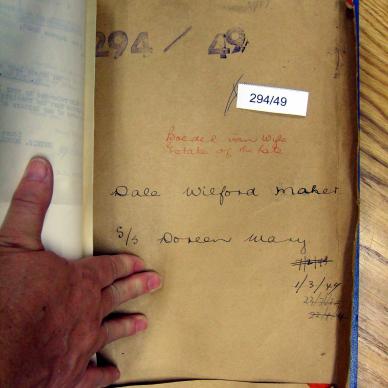 294 / 49
294/49
Boedel van Wyle
Estate of the Late
Dale Wilford Maher
S/S Doreen Mary
1/3/49